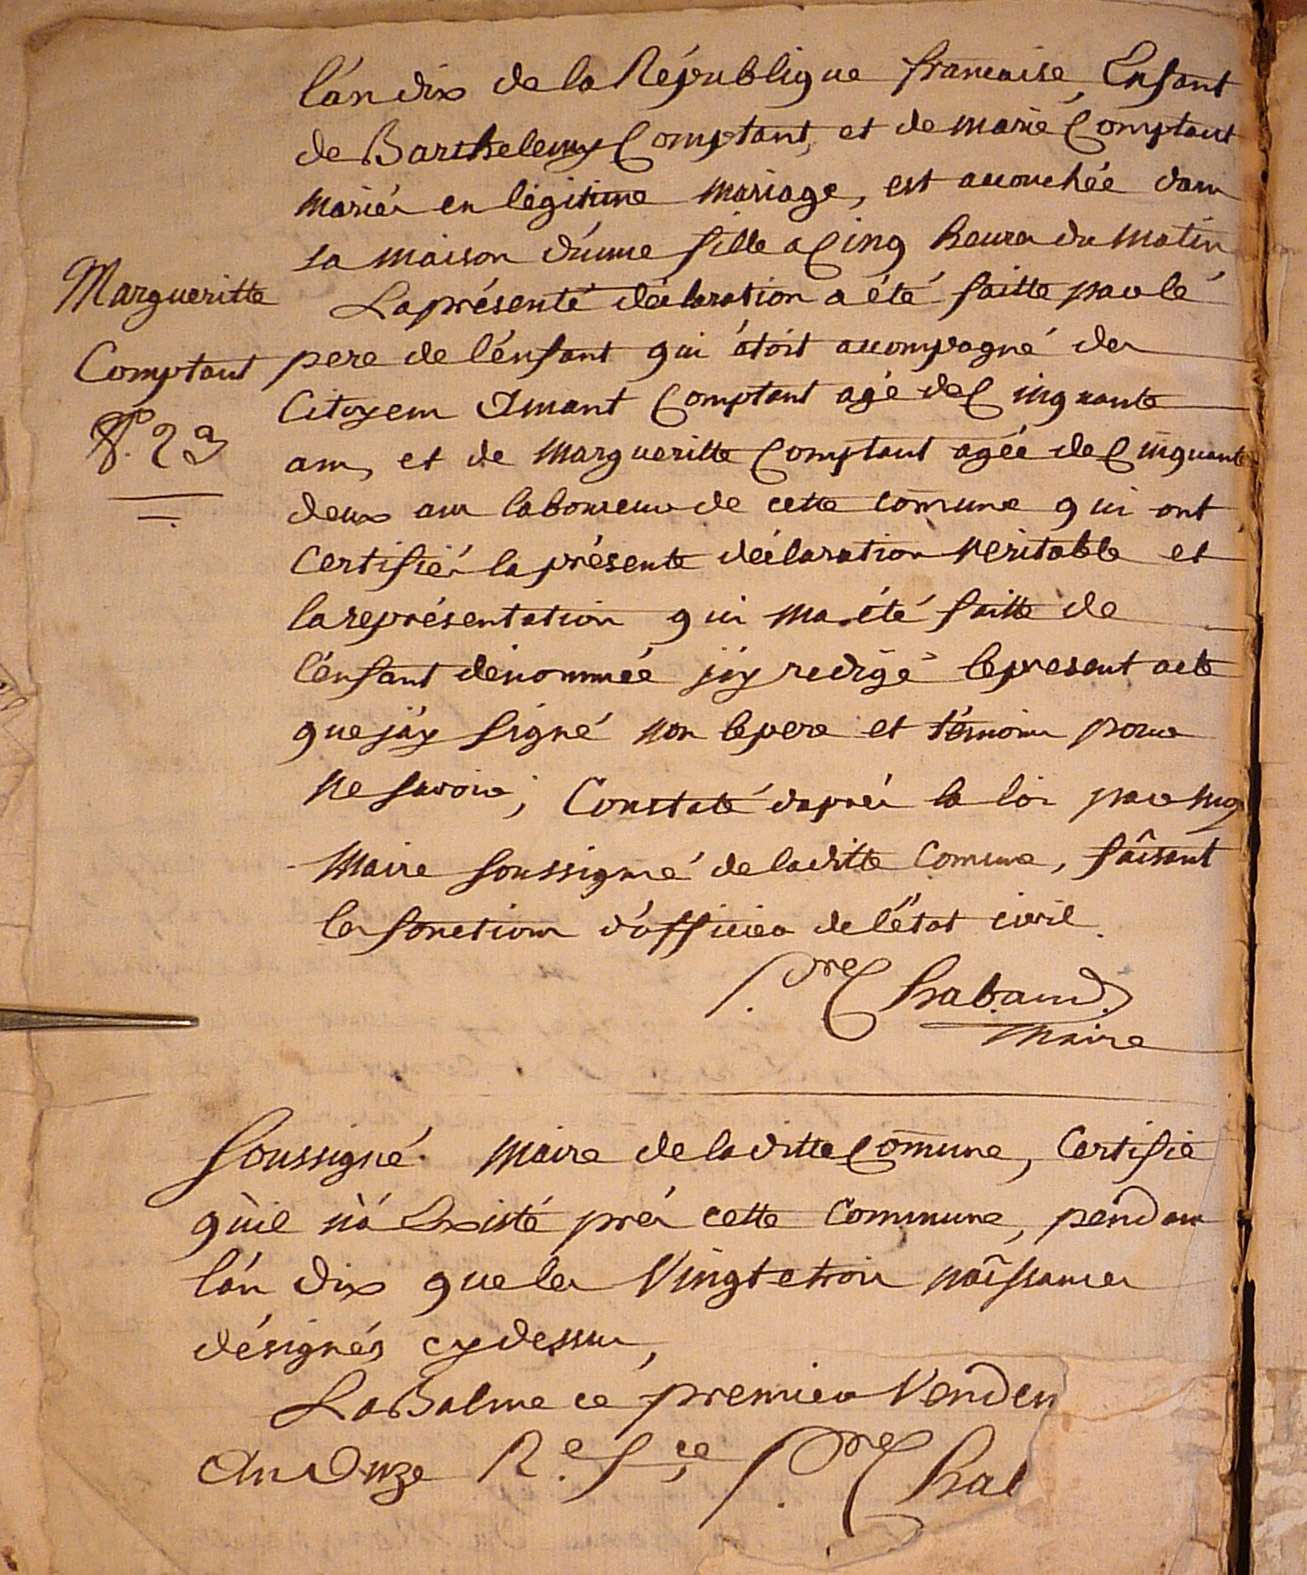 l'an dix de la République francaise, Enfant
de Barthelemy Comptant, et de marie Comptant
mariés en légitime mariage, est accouchée dans
sa maison d'une fille a Cinq heures du matin
Margueritte
Comptant
N.º 23
La présenté déclaration a été faitte par lé
pere de l'énfant qui étoit accompagné des
Citoyens Amant Comptant agé de Cinquante
ans, et de Margueritte Comptant agée de Cinquante
deux ans laboureurs de cette comune qui ont
Certifiés la présente déclaration veritable et
la représentation qui ma été faitte de
l'énfant dénommée j'ay redigé le present acte
que j'ay signé non le pere et témoins pour
ne savoir; Constaté d'aprés la loi par moy
Maire soussigné de laditte Comune, faîsant
les fonctions d'officier de l'état civil.
P.re Chabaud
Maire
Soussigné Maire de laditte Comune, Certifie
qu'il n'a Existé prés cette Commune, pendans
l'an dix que les Vingt et trois naîssances
désignés cy dessus,
La Balme ce premier Vendem
An Onze R.e f.ce P.re Chab